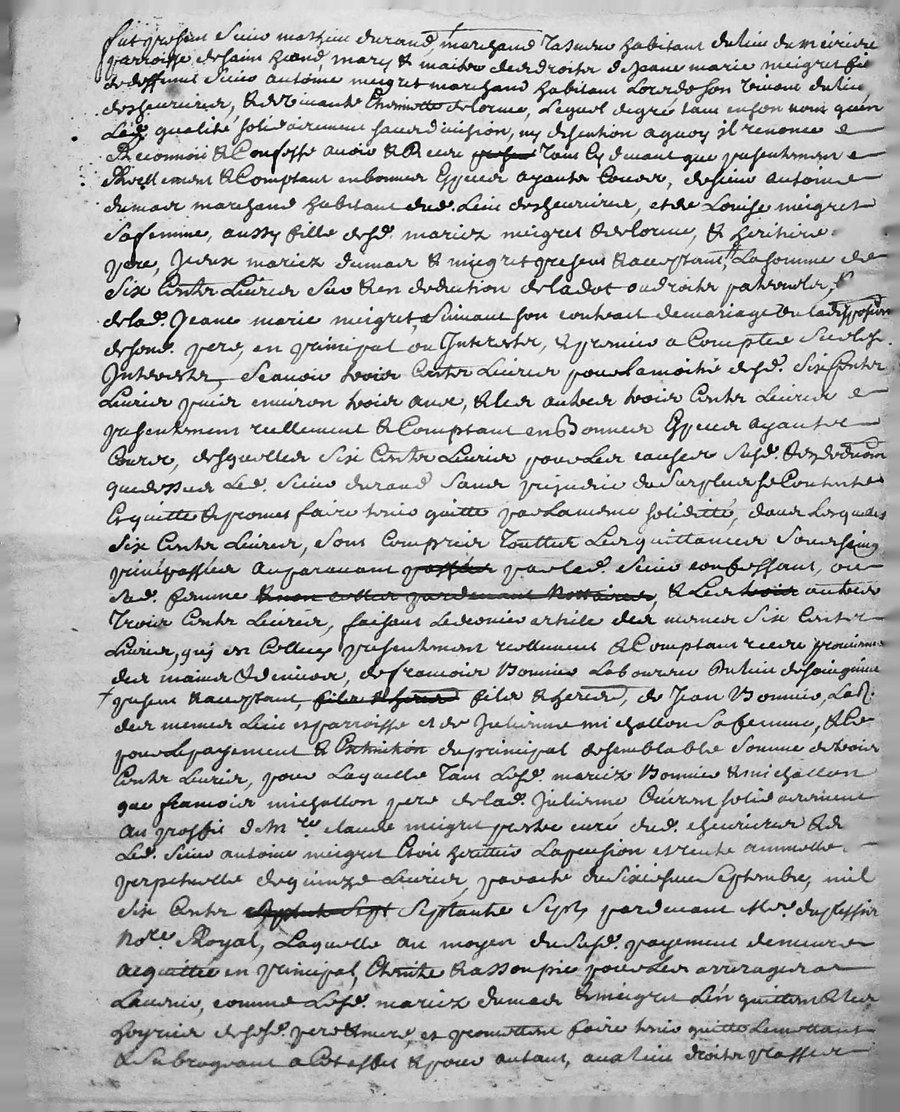 fut present Sieur mathieu durand, marchand habitant du lieu du
parroisse de saint haond, mary & maitre des droits de Jeane marie meigret fille
de deffunt Sieur antoine meigret marchand habitant Lors de son vivant du lieu
des heurieres, & de vivante delorme, Lequel de gré tant en son nom qu'en
Lad. qualité, solidairement sans division, ny discution a quoy il renonce
Reconnoit & Confesse avoir & Receu tant cy devant que presentement
Reellement & Comptant en bonnes Especes ayants Cours, de sieur antoine
dumas marchand habitant dud. Lieu des heurieres, et de Louise meigret
Sa femme, aussy fille desd. mariez meigret & delorme, & heritiere
pere, Iceux mariez dumas & meigret present & acceptant, La somme de
Six Cents Livres Sur & en deduction de la dot ou droits paternels
de lad. Jeane marie meigret, Suivant son contrait de mariage ou la disposition
de sond. pere, en principal ou Interests, & premier a Compte Sur lesd.
Interests, Scavoir trois Cents Livres pour La moitié desd. Six Cents
Livres puis environ trois ans, & Les autres trois Cents Livres
presentement reellement & Comptant en Bonnes Especes ayants
Cours, desquelles Six Cents Livres pour Les causes Susd. & en deduction
que dessus Led. Sieur durand Sans prejudice du Surplus se Contente
Et quitte & promet faire tenir quitte par La meme solidité, dans Lesquelles
Six Cents Livres, Sont Comprises Touttes Les quittances Sous seing
privé passées auparavant passées par led. Sieur confessant, ou
Sad. femme & non celles pardevant Nottaires, & Les trois autres
Trois Cents Livres, faisant Le dernier article des memes Six Cents
Livres, qui en Celles presentement reellement & Comptant receu
des mains & deniers, de francois Bonnier Laboureur du lieu de
present & acceptant, fils & heritier de Jean Bonnier, Lab.
des memes Lieu et parroisse et de Julienne michallon Sa femme, & Ce
pour Le payement & Extinction du principal de semblable Somme de trois
Cents Livres, pour Laquelle Tant Lesd. mariez Bonnier & michallon
que francois michallon pere de lad. Julienne Créerent solidairement
Au proffit de Mre claude meigret prestre curé dud. cheurieres & de
Led. Sieur antoine meigret Etoit heritier La pension et rente annuelle
perpetuelle de quinze Livres, par acte du Sixiesme Septembre, mil
Six Cents septante Sept Septante Sept, pardevant Mre. duplessis
Nore. Royal, Laquelle au moyen du Susd. payement demeure
acquittée en principal, Eteinte & assoupie pour Les arrerages
Lavenir, comme Lesd. mariez dumas & meigret L'en quittent & Les
hoyries de sesd. pere & mere, et promettent faire tenir quitte Le mettant
& Subrogeant a Cet effet & pour autant, au lieu droits places